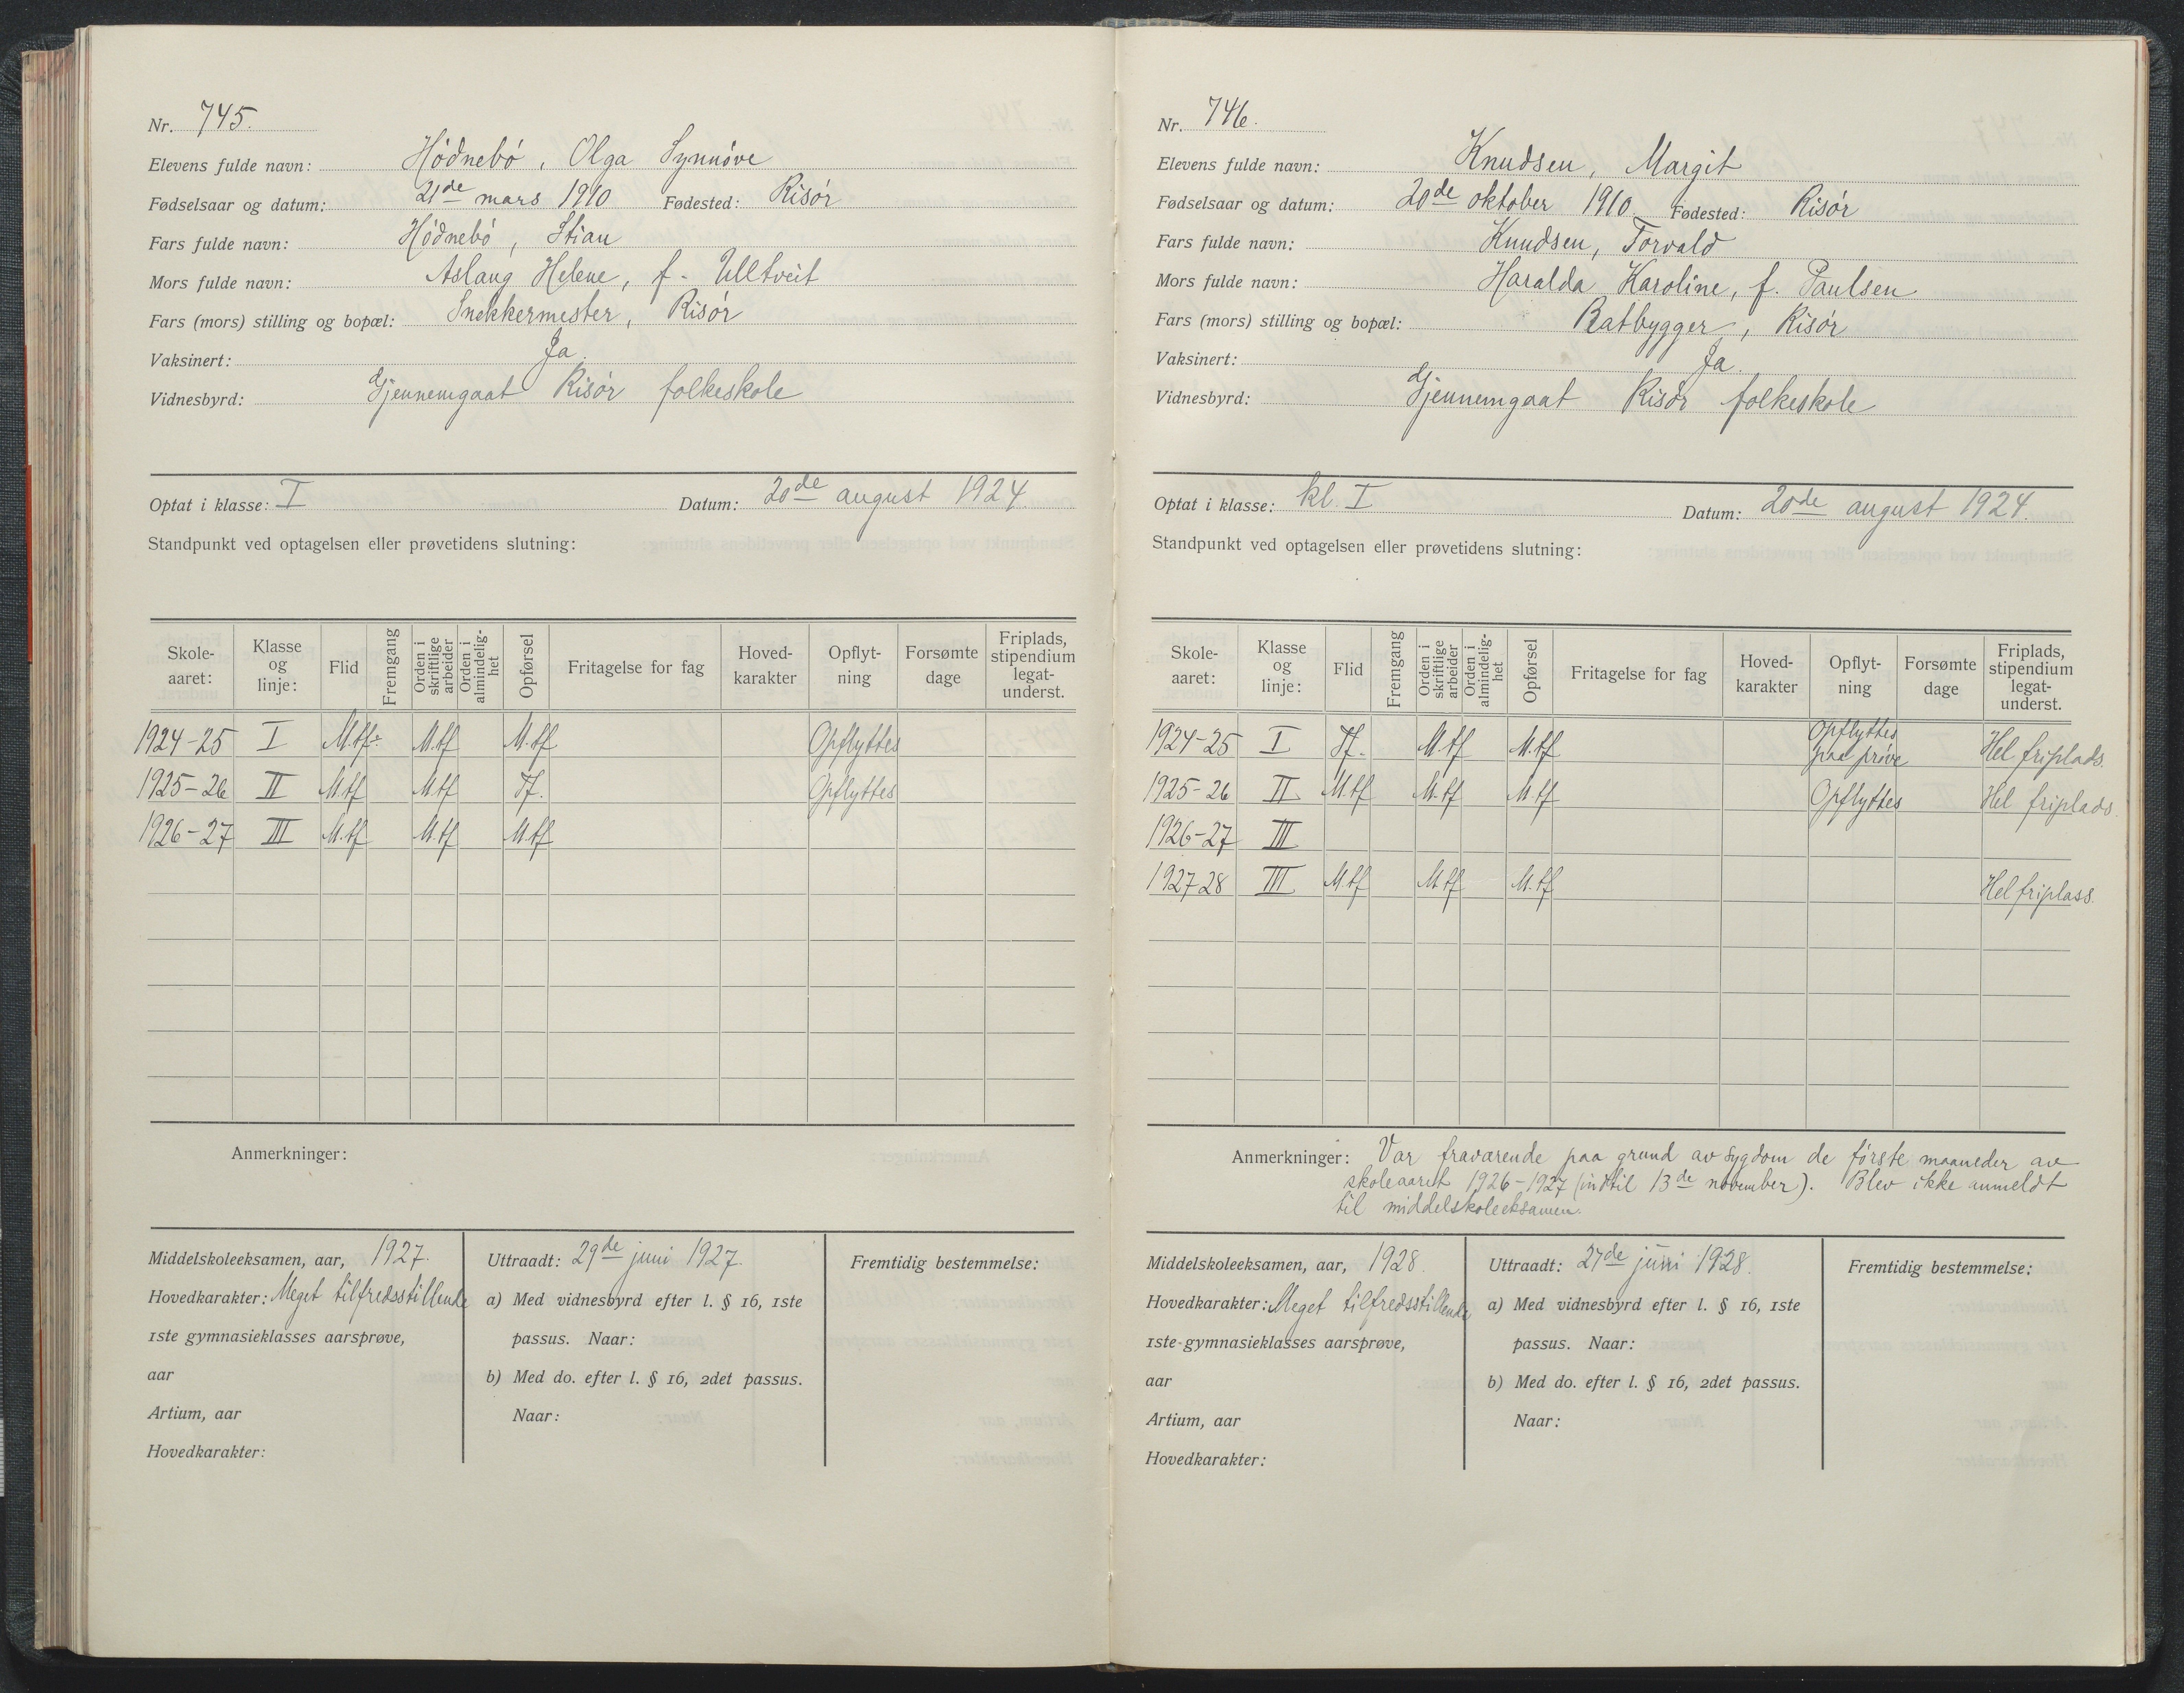 Nr. 745.
Elevens fulde navn: Hödnebö, Olga Synnöve
Fødselsaar og datum: 21de mars 1910 Fødested: Risör
Fars fulde navn: Hödnebö, Stian
Mors fulde navn: Aslaug Helene, f. Ulltveit
Fars (mors) stilling og bopæl: Snekkermester, Risör
Vaksinert: Ja.
Vidnesbyrd: Gjennemgaat Risör folkeskole
Optat i klasse: I Datum: 20de august 1924.
Standpunkt ved optagelsen eller prøvetidens slutning:
Skole-aaret: Klasse og linje: Flid Fremgang Orden i skriftlige arbeider Orden i almindelig-het Opførsel Fritagelse for fag Hoved-karakter Opflyt-ning Forsømte dage Friplads, stipendium legat-underst.
1924-25 I M.tf. M.tf M.tf Opflyttes
1925-26 II M.tf M.tf Tf. Opflyttes
1926-27 III M.tf M.tf M.tf
Anmerkninger:
Middelskoleeksamen, aar, 1927.
Hovedkarakter: Meget tilfredsstillende
1ste gymnasieklasses aarsprøve,
aar
Artium, aar
Hovedkarakter:
Uttraadt: 29de juni 1927.
a) Med vidnesbyrd efter l. § 16, 1ste
passus. Naar:
b) Med do. efter l. § 16, 2det passus.
Naar:
Fremtidig bestemmelse:
Nr. 746.
Elevens fulde navn: Knudsen, Margit
Fødselsaar og datum: 20de oktober 1910 Fødested: Risör
Fars fulde navn: Knudsen, Torvald
Mors fulde navn: Haralda Karoline, f. Paulsen
Fars (mors) stilling og bopæl: Baatbygger, Risör
Vaksinert: Ja.
Vidnesbyrd: Gjennemgaat Risör folkeskole
Optat i klasse: kl. I Datum: 20de august 1924.
Standpunkt ved optagelsen eller prøvetidens slutning:
Skole-aaret: Klasse og linje: Flid Fremgang Orden i skriftlige arbeider Orden i almindelig-het Opførsel Fritagelse for fag Hoved-karakter Opflyt-ning Forsømte dage Friplads, stipendium legat-underst.
1924-25 I Tf. M.tf M.tf Opflyttes paa pröve Hel friplads.
1925-26 II M.tf M.tf M.tf Opflyttes Hel friplads.
1926-27 III
1927 28 III M.tf M.tf M.tf Hel friplass.
Anmerkninger: Var fraværende paa grund av sygdom de förste maaneder av
skoleaaret 1926-1927 (indtil 13de november). Blev ikke anmeldt
til middelskoleeksamen.
Middelskoleeksamen, aar, 1928.
Hovedkarakter: Meget tilfredsstillende
1ste gymnasieklasses aarsprøve,
aar
Artium, aar
Hovedkarakter:
Uttraadt: 27de juni 1928.
a) Med vidnesbyrd efter l. § 16, 1ste
passus. Naar:
b) Med do. efter l. § 16, 2det passus.
Naar:
Fremtidig bestemmelse: